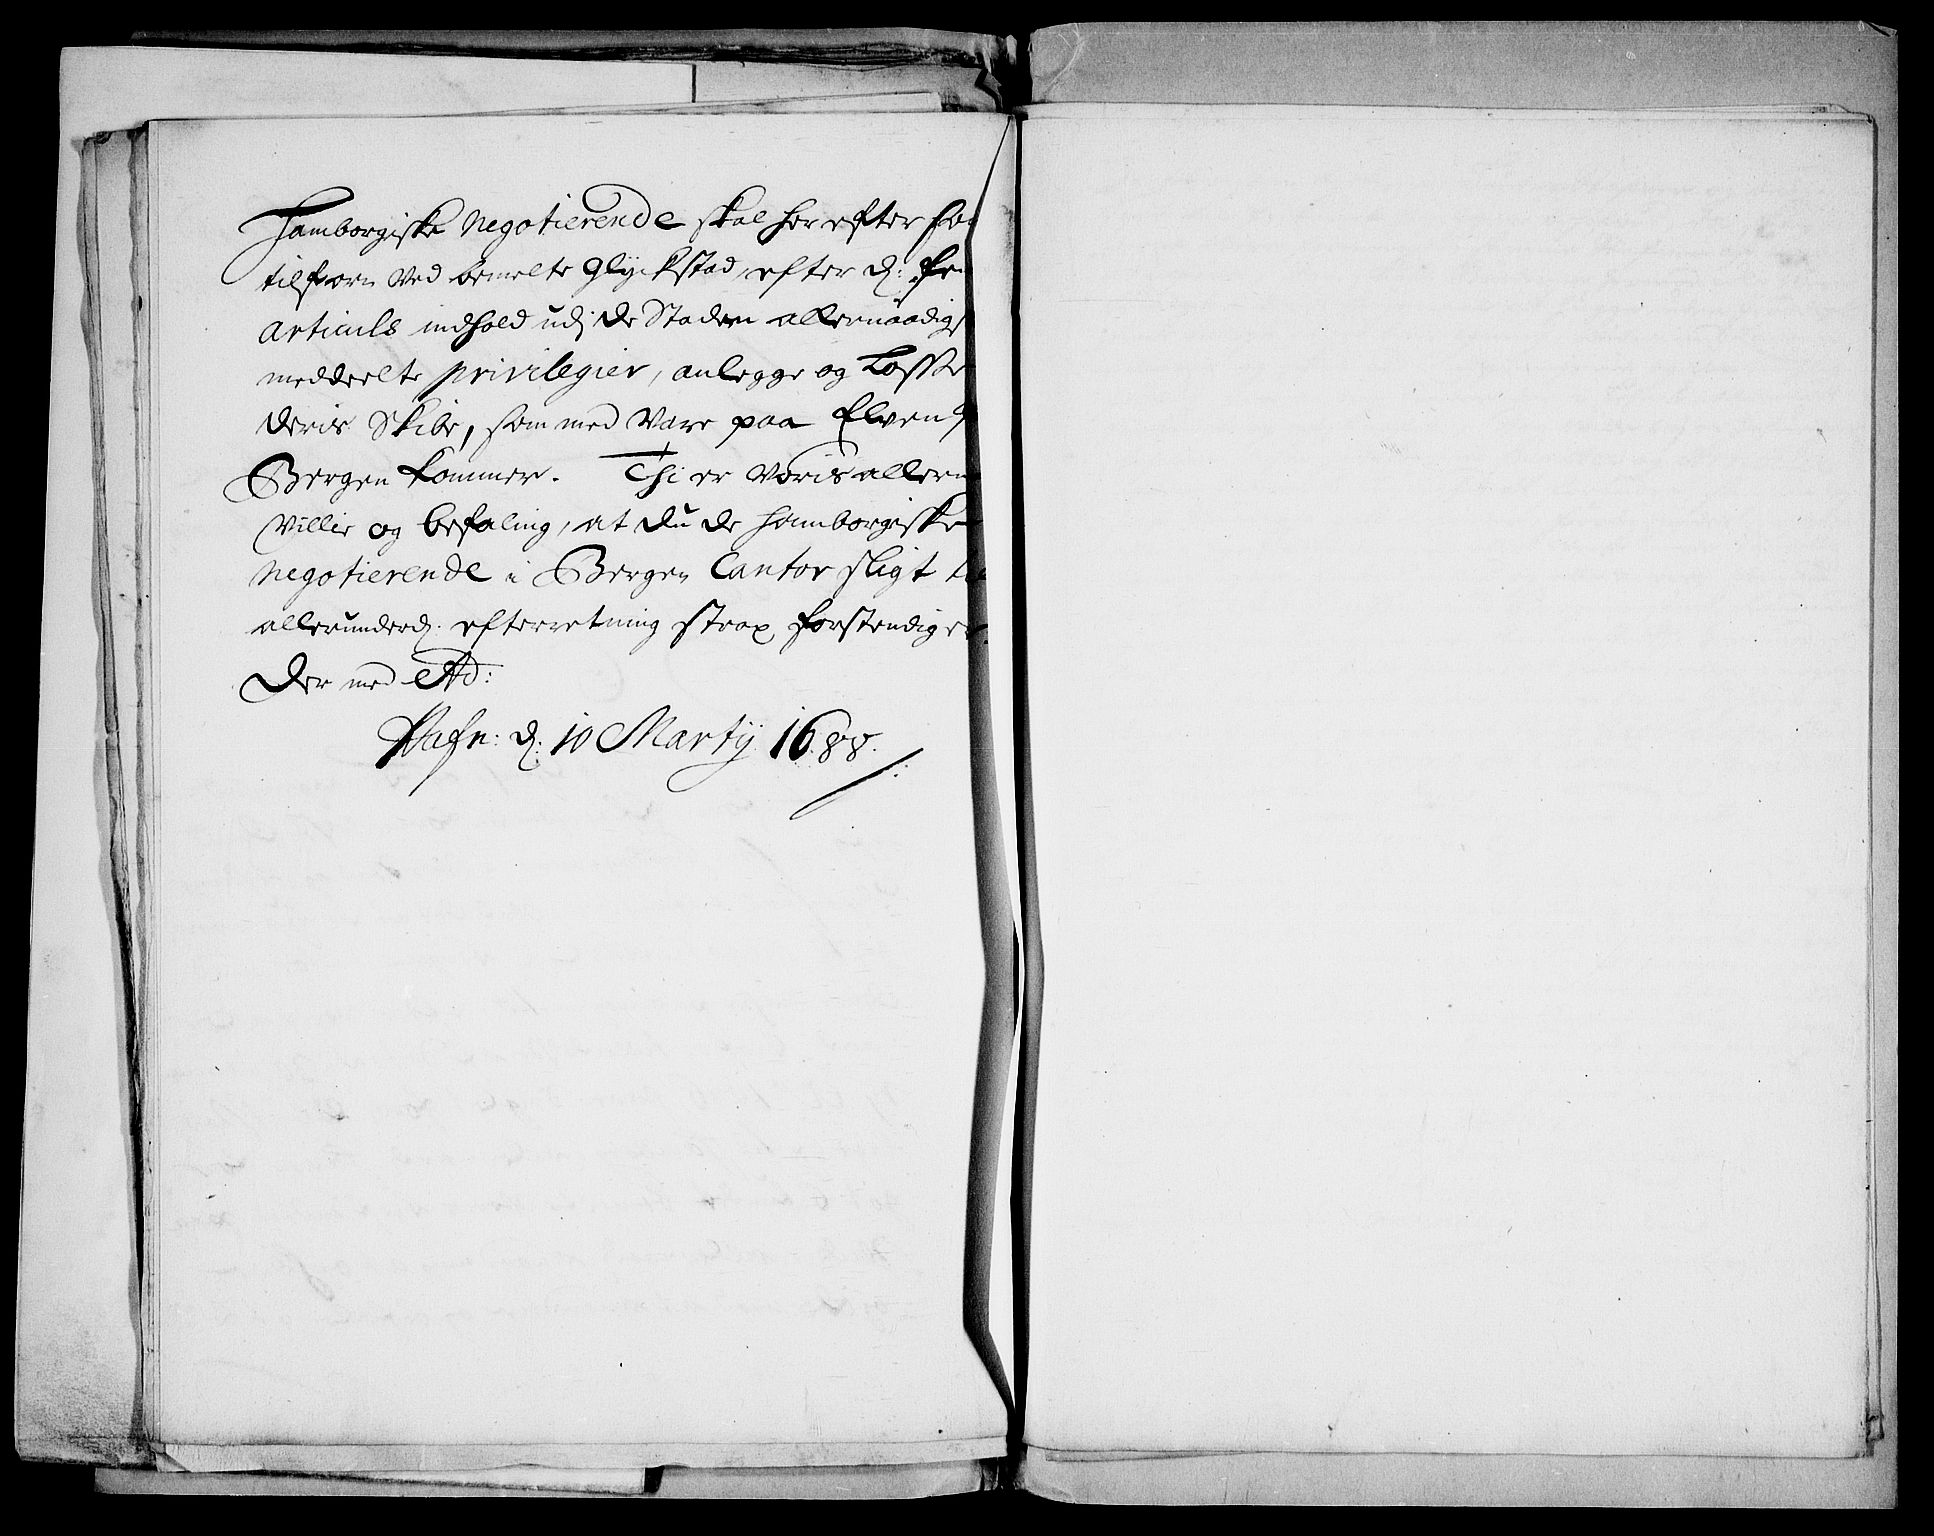 Hamborgiske Negotierende skal her efter som
tilforn ved bemelte Glyckstad, efter d:
Articuls indhold udj de Staden allernaadigst
meddeelte privilegier, anlegge og Losse
deris Skibe, som med Vare paa Elven
Bergen kommer. Thi er Voris allern
Villie og befaling, at du de Hamborgiske
Negotierende i Bergen Cantor sligt til
allerunderd: efterretning strax forstendiger.
Der med
Hafn: d: 10 Martij 1688.